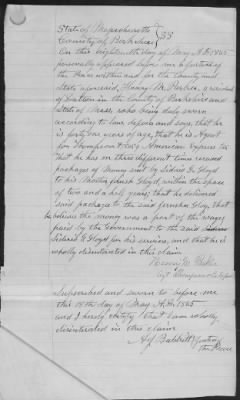 State of Massachusetts
County of Berkshire } SS
On this eighteenth day of May A.D. 1865
personally appeared before me a Justice of
the Peace within and for the County and
State aforesaid, Henry M. a resident
of Dalton in the County of Berkshire and
State of Mass. who being duly sworn
according to law deposes and says, that he
is forty one years of age, that he is Agent
for Thompson & Co's American Express Co
that he has on three different times received
packages of Money sent by Sidred G Gloyd
to his Mother Jerush Gloyd, within the space
of two and a half years, that he delivered
said packages to the said Jerusha Gloyd, that
he believes the money was a part of the wages
paid by the Government to the said
Sidred G Gloyd for his services, and that he is
wholly disinterested in this claim
Henry M.
Agt Thompson & Co
Subscribed and sworn to before me
this 18th day of May A.D. 1865
and I hereby certify that I am wholly
disinterested in this claim
Justice of
the Peace